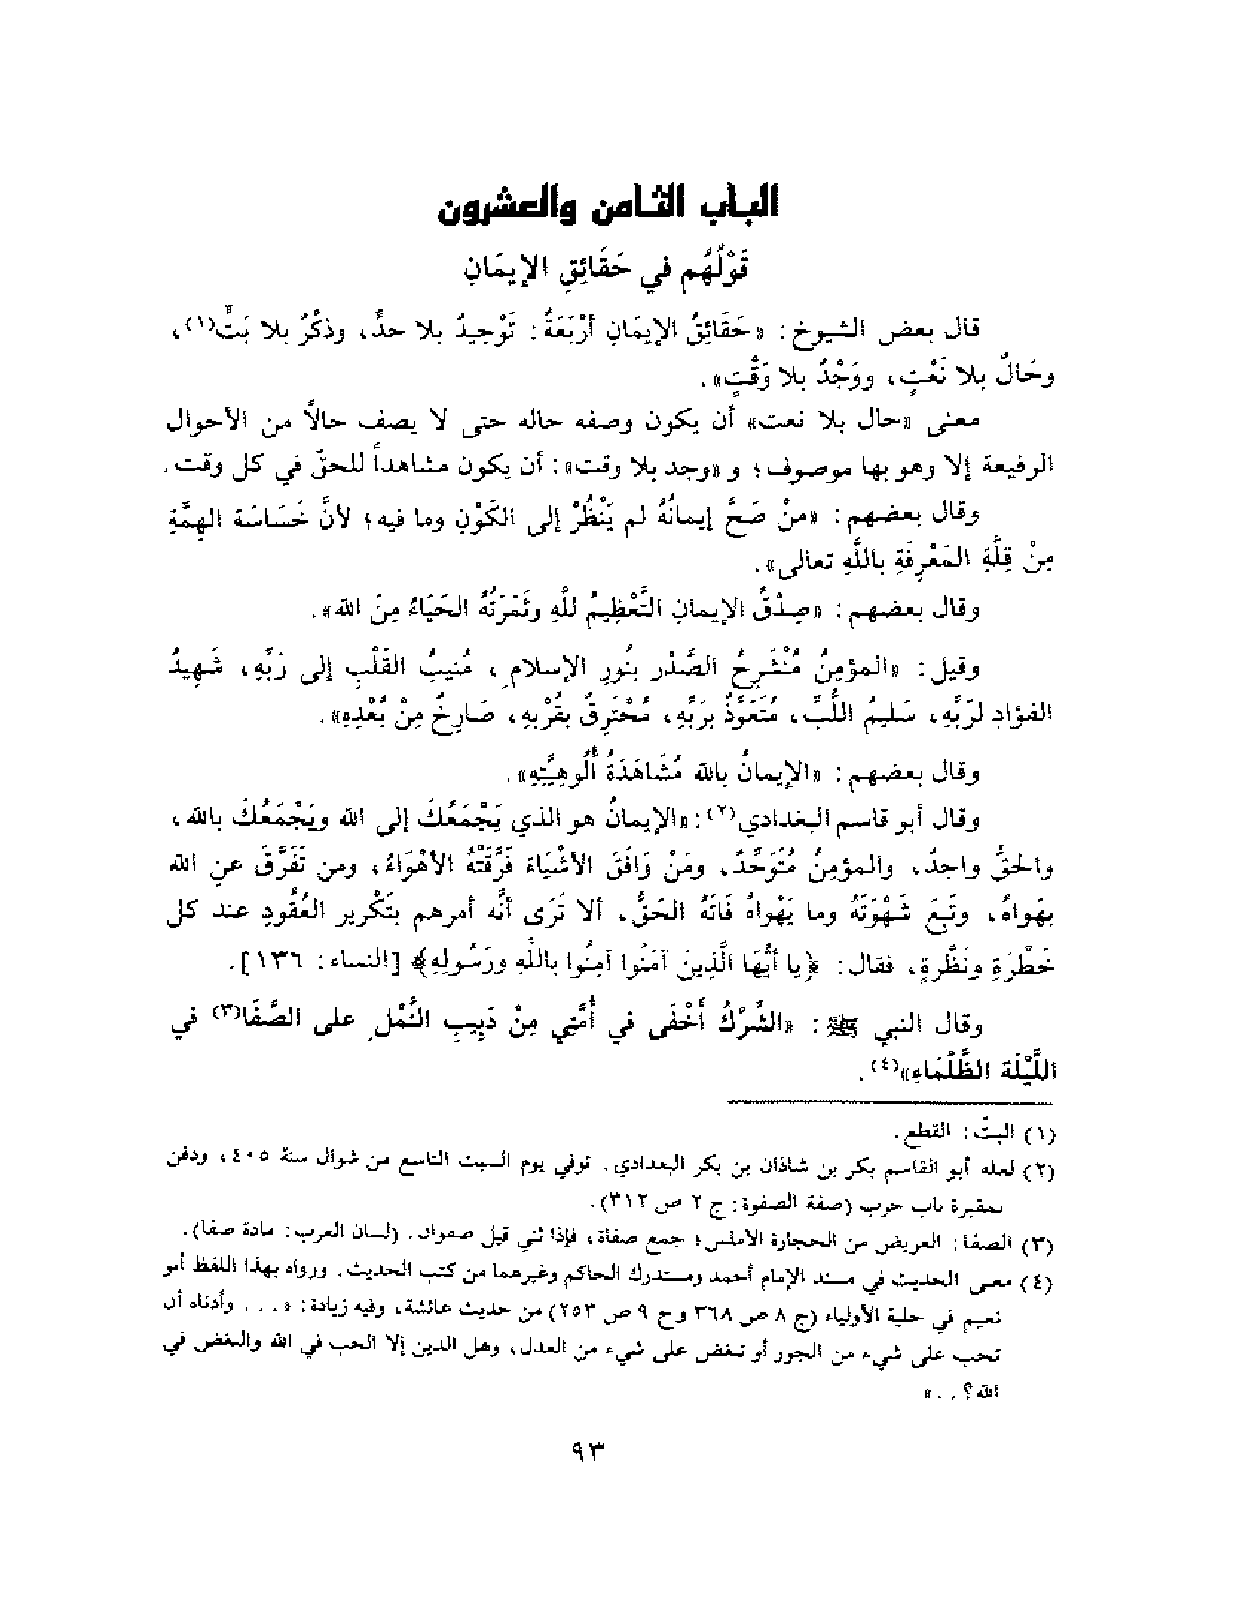 الباب الثامن والعشرون
قَوْلُهُم في حَقَائِقِ الإيمَانِ
قال بعض الشيوخ : «حَقَائِقُ الإيمَانِ أرْبَعَةٌ : تَوْحِيدٌ بلا حدٍّ، وذكْرٌ بلا بَتٍّ(١)،
وحَالٌ بلا نَعْتٍ، ووَجْدٌ بلا وَقْتٍ».
معنى «حال بلا نعت» أن يكون وصفه حاله حتى لا يصف حالاً من الأحوال
الرفيعة إلا وهو بها موصوف ؛ و «وجد بلا وقت» : أن يكون مشاهداً للحقّ في كل وقت .
وقال بعضهم : «منْ صَحَّ إيمانُهُ لم يَنْظُرْ إلى الكَوْنِ وما فيه ؛ لأنَّ خَسَاسَة الهِمَّةِ
مِنْ قِلَّةِ المَعْرِفَةِ باللَّهِ تعالى» .
وقال بعضهم : «صِدْقُ الإيمانِ التَّعْظِيمُ للَّهِ وثَمْرَتُهُ الحَيَاءُ مِنَ الله» .
وقيل : «المؤمِنُ مُنْشَرِحُ الصَّدْرِ بنُورِ الإسلامِ ، مُنيبُ القَلْبِ إلى رَبِّهِ، شَهِيدُ
الفؤادِ لرَبِّهِ، سَليمُ اللُّبِّ، مُتَعَوِّذٌ برَبِّهِ، مُحْتَرِقٌ بقُرْبِهِ، صَارِخٌ مِنْ بُعْدِهِ» .
وقال بعضهم : «الإيمانُ بالله مُشَاهَدَةُ أُلُوهِيَّتِهِ» .
وقال أبو قاسم البغدادي(٢) : «الإيمانُ هو الذي يَجْمَعُكَ إلى الله ويَجْمَعُكَ بالله،
والحَقُّ واحِدٌ، والمؤمِنُ مُتَوَحِّدٌ، ومَنْ وَافَقَ الأشْيَاءَ فَرَّقَتْهُ الأهْوَاءُ، ومن تَفَرَّقَ عن الله
بهَواهُ، وتَبِعَ شَهْوَتَهُ وما يَهْواهُ فَاتَهُ الحَقُّ، ألا تَرَى أنَّه أمرهم بتَكْرير العُقُودِ عند كل
خَطْرَةٍ ونَظْرةٍ، فقال : ﴿يا أيُّهَا الَّذِينَ آمَنُوا آمِنُوا باللَّهِ ورَسُولِهِ﴾ [النساء : ١٣٦] .
وقال النبي ﷺ : «الشِّرْكُ أخْفَى في أُمَّتِي مِنْ دَبِيبِ النَّمْلِ على الصَّفَا(٣) في
اللَّيْلَةِ الظَّلْمَاءِ»(٤) .
(١) البتّ : القطع .
(٢) لعله أبو القاسم بكر بن شاذان بن بكر البغدادي . توفي يوم السبت التاسع من شوال سنة ٤٠٥ ، ودفن
بمقبرة باب حرب (صفة الصفوة : ج ٢ ص ٣١٢) .
(٣) الصفا : العريض من الحجارة الأملس؛ جمع صفاة، فإذا ثني قيل صفوان . (لسان العرب : مادة صفا) .
(٤) معنى الحديث في مسند الإمام أحمد ومستدرك الحاكم وغيرهما من كتب الحديث . ورواه بهذا اللفظ أبو
نعيم في حلية الأولياء (ج ٨ ص ٣٦٨ وج ٩ ص ٢٥٣) من حديث عائشة، وفيه زيادة : « . . . وأدناه أن
تحب على شيء من الجور أو تبغض على شيء من العدل، وهل الدين إلا الحب في الله والبغض في
الله؟ . . »
٩٣